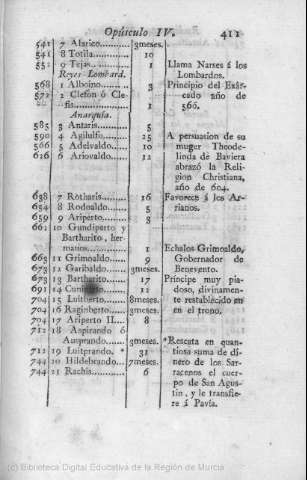 Opúsculo IV. 411
541 7 Alarico........... 3meses.
541 8 Totila............ 10
552 9 Tejas............ 1 Llama Narses á los
Reyes Lombard. Lombardos.
568 1 Alboino.......... 3 Principio del Exâr-
572 2 Clefon ó Cle- cado año de
fis............... 1 566.
Anarquía.
585 3 Antaris.......... 5
590 4 Agilulfo......... 25 A persuasion de su
566 5 Adelvaldo....... 10 muger Theode-
626 6 Ariovaldo....... 12 linda de Baviera
abrazó la Reli
gion Christiana,
año de 604.
638 7 Rotharis......... 16 Favorece á los Ar-
654 8 Rodoaldo....... 5 rianos.
659 9 Ariperto......... 3
662 10 Gundiperto y
Bartharito, her-
manos........... 1 Echalos Grimoaldo,
663 11 Grimoaldo...... 9 Gobernador de
673 11 Garibaldo....... 3meses. Benevento.
673 13 Bartharito....... 17 Príncipe muy pia-
691 14 12 doso, divinamente
704 15 Luitberto....... 8meses. restablecido en
704 16 Raginberto...... 3meses. en el trono.
704 17 Ariperto II...... 8
712 18 Aspirando ó
Ausprando...... 3meses. *Rescata en quan-
712 19 Luitprando. * 31 tiosa suma de di-
744 20 Hildebrando.... 7meses. nero de los Sar-
744 21 Rachis........... 6 racenos el cuer-
po de San Agus-
tin, y le transfie-
re á Pavía.
(c) Biblioteca Digital Educativa de la Región de Murcia